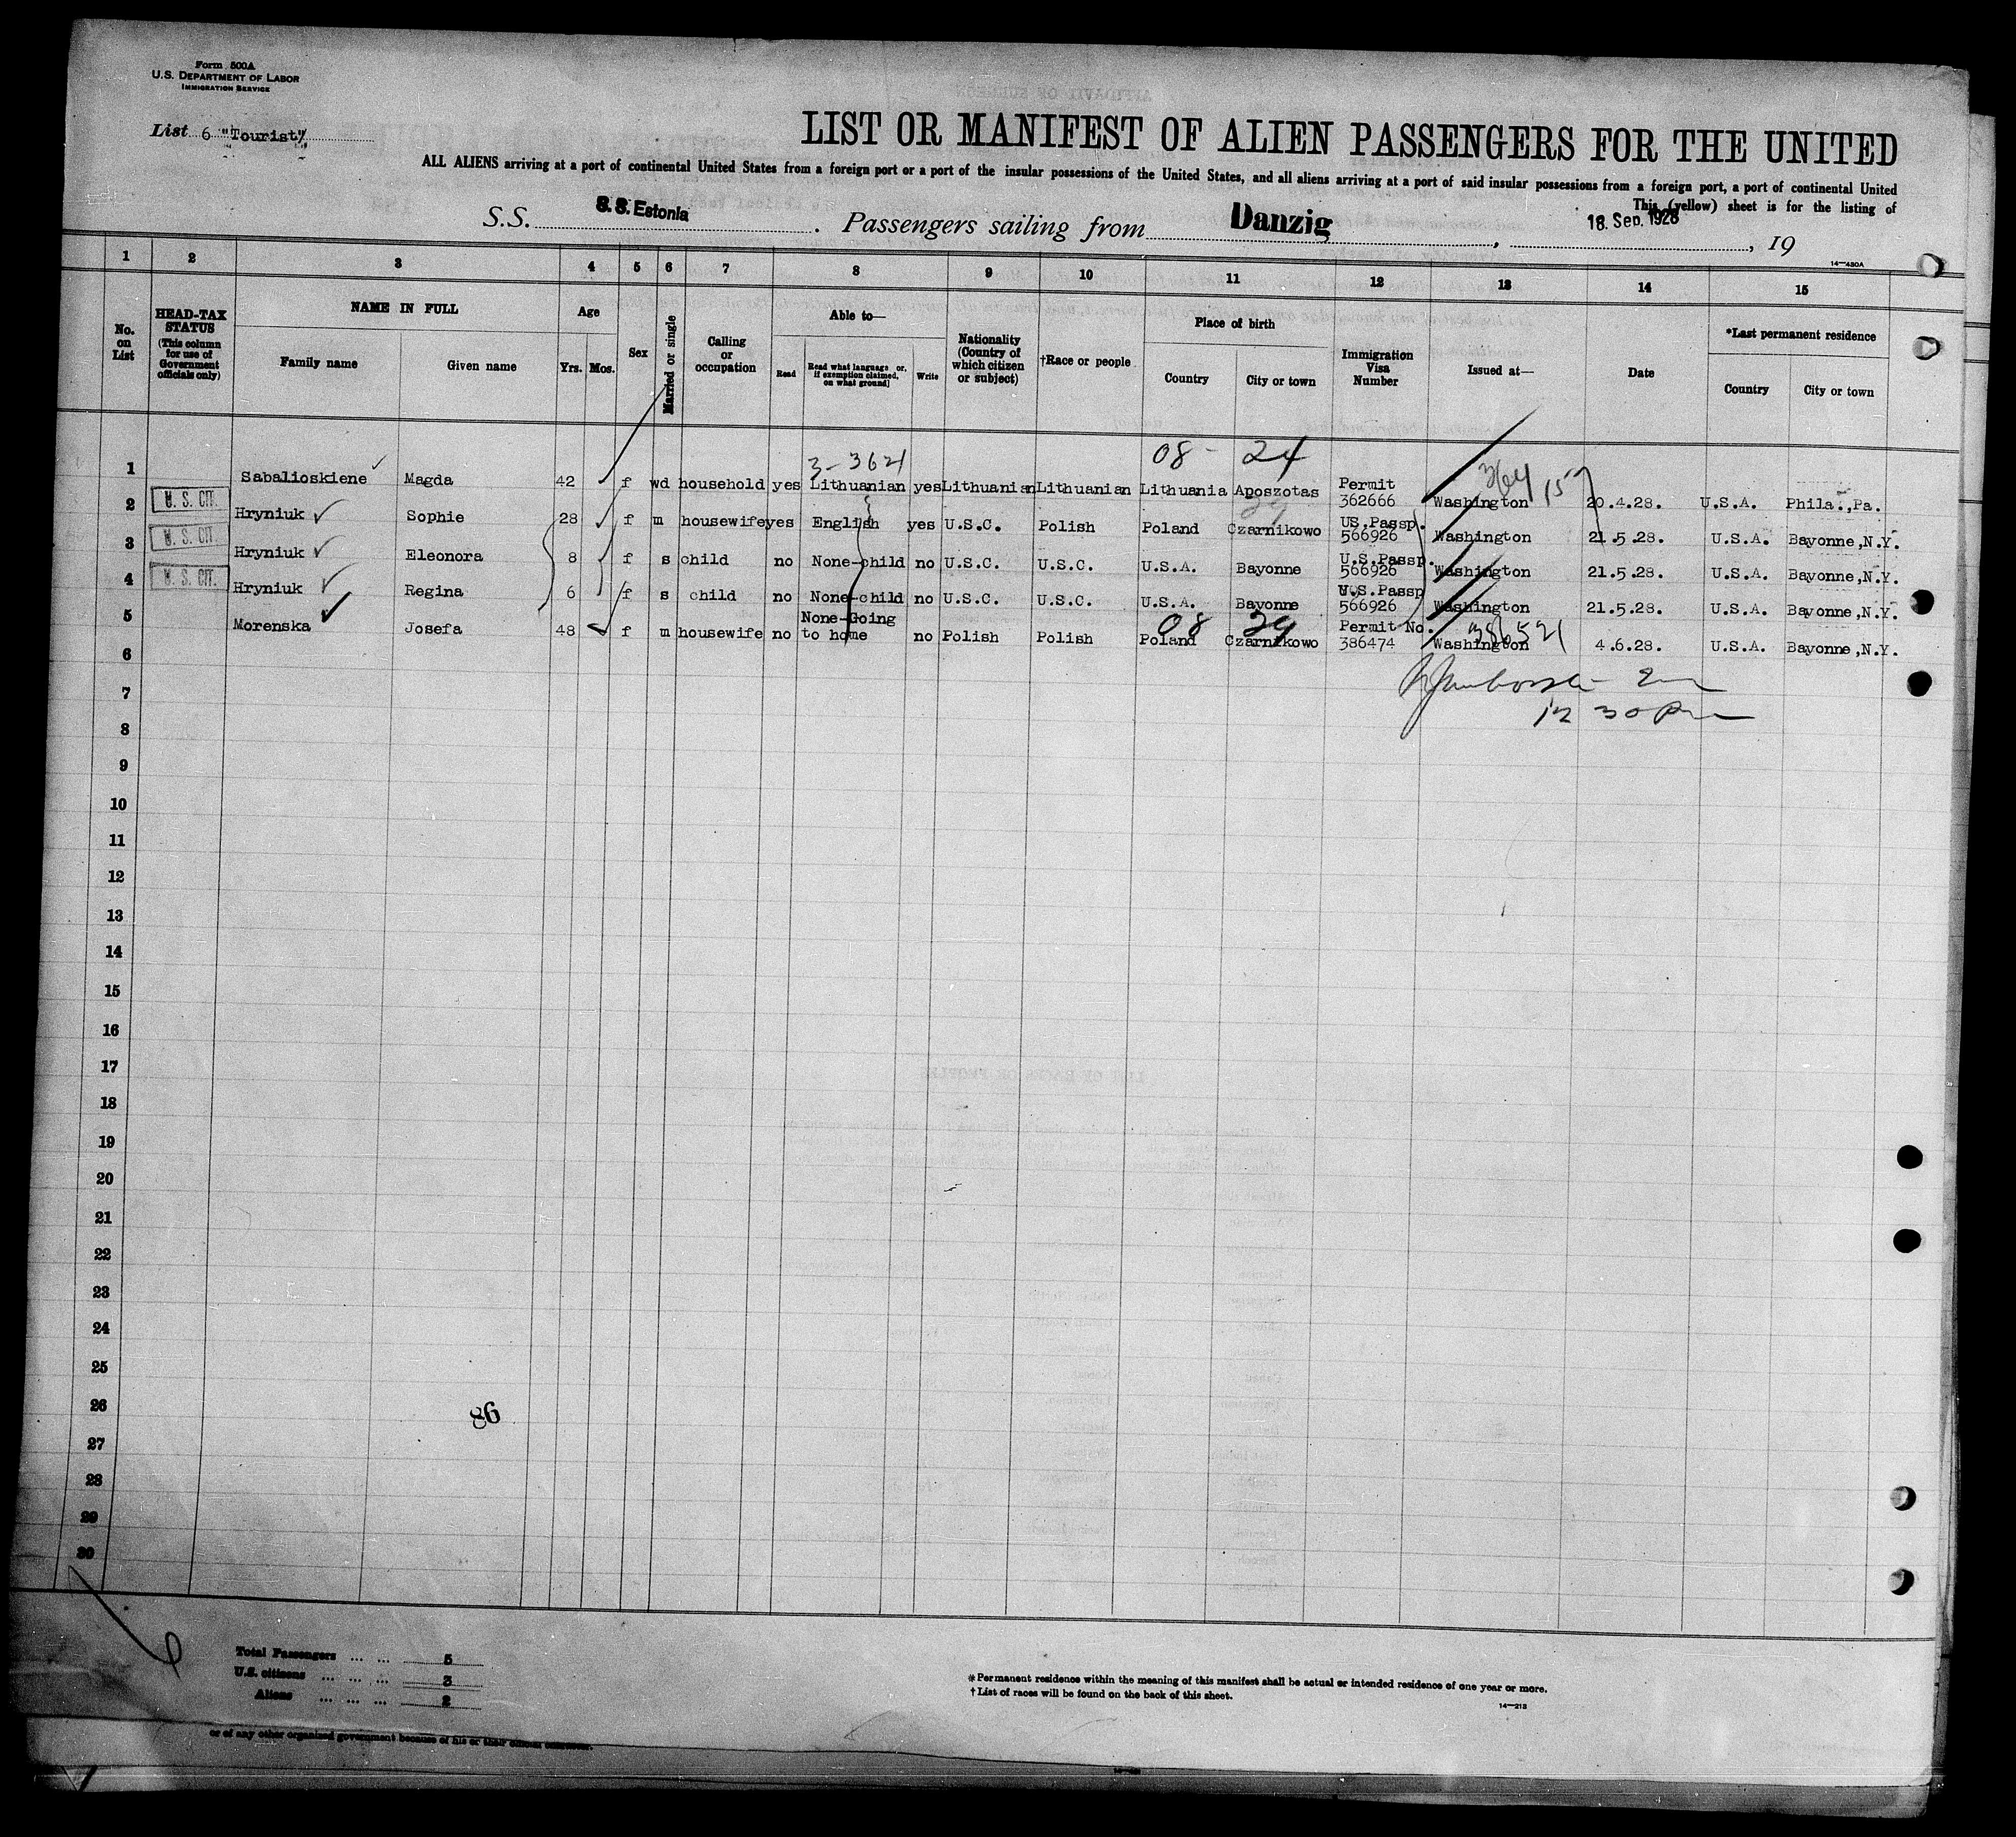 Form 500A
U.S. DEPARTMENT OF LABOR
IMMIGRATION SERVICE
List 6 "Tourist"
LIST OR MANIFEST OF ALIEN PASSENGERS FOR THE UNITED
ALL ALIENS arriving at a port of continental United States from a foreign port or a port of the insular possessions of the United States, and all aliens arriving at a port of said insular possessions from a foreign port, a port of continental United
This (yellow) sheet is for the listing of
S.S. S.S. Estonia. Passengers sailing from Danzig, 18. Sep. 1928, 19
14—480A
1 2 3 4 5 6 7 8 9 10 11 12 13 14 15
No. on List
HEAD-TAX STATUS (This column for use of Government officials only)
NAME IN FULL
Family name Given name
Age
Yrs. Mos.
Sex
Married or single
Calling or occupation
Able to—
Read Read what language or, if exemption claimed, on what ground] Write
Nationality (Country of which citizen or subject)
†Race or people
Place of birth
Country City or town
Immigration Visa Number
Issued at—
Date
*Last permanent residence
Country City or town
3-3621 08- 24 364 15
1 Sabalioskiene Magda 42 f wd household yes Lithuanian yes Lithuanian Lithuanian Lithuania Aposzotas Permit 362666 Washington 20.4.28. U.S.A. Phila.,Pa.
2 U.S. CIT. Hryniuk Sophie 28 f m housewife yes English yes U.S.C. Polish Poland Czarnikowo US.Passp. 566926 Washington 21.5.28. U.S.A. Bayonne,N.Y.
3 U.S. CIT. Hryniuk Eleonora 8 f s child no None-child no U.S.C. U.S.C. U.S.A. Bayonne U.S.Passp. 566926 Washington 21.5.28. U.S.A. Bayonne,N.Y.
4 U.S. CIT. Hryniuk Regina 6 f s child no None-child no U.S.C. U.S.C. U.S.A. Bayonne U.S.Passp 566926 Washington 21.5.28. U.S.A. Bayonne,N.Y.
08 29
5 Morenska Josefa 48 f m housewife no None-Going to home no Polish Polish Poland Czarnikowo Permit No. 386474 Washington 4.6.28. U.S.A. Bayonne,N.Y.
6
7
12 30 Pm
8
9
10
11
12
13
14
15
16
17
18
19
20
21
22
23
24
25
26
86
27
28
29
30
6
Total Passengers ... ... 5
U.S. citizens ... ... ... 3
Aliens ... ... ... 2
*Permanent residence within the meaning of this manifest shall be actual or intended residence of one year or more.
†List of races will be found on the back of this sheet.
14—213
or of any other organized government because of his or their official